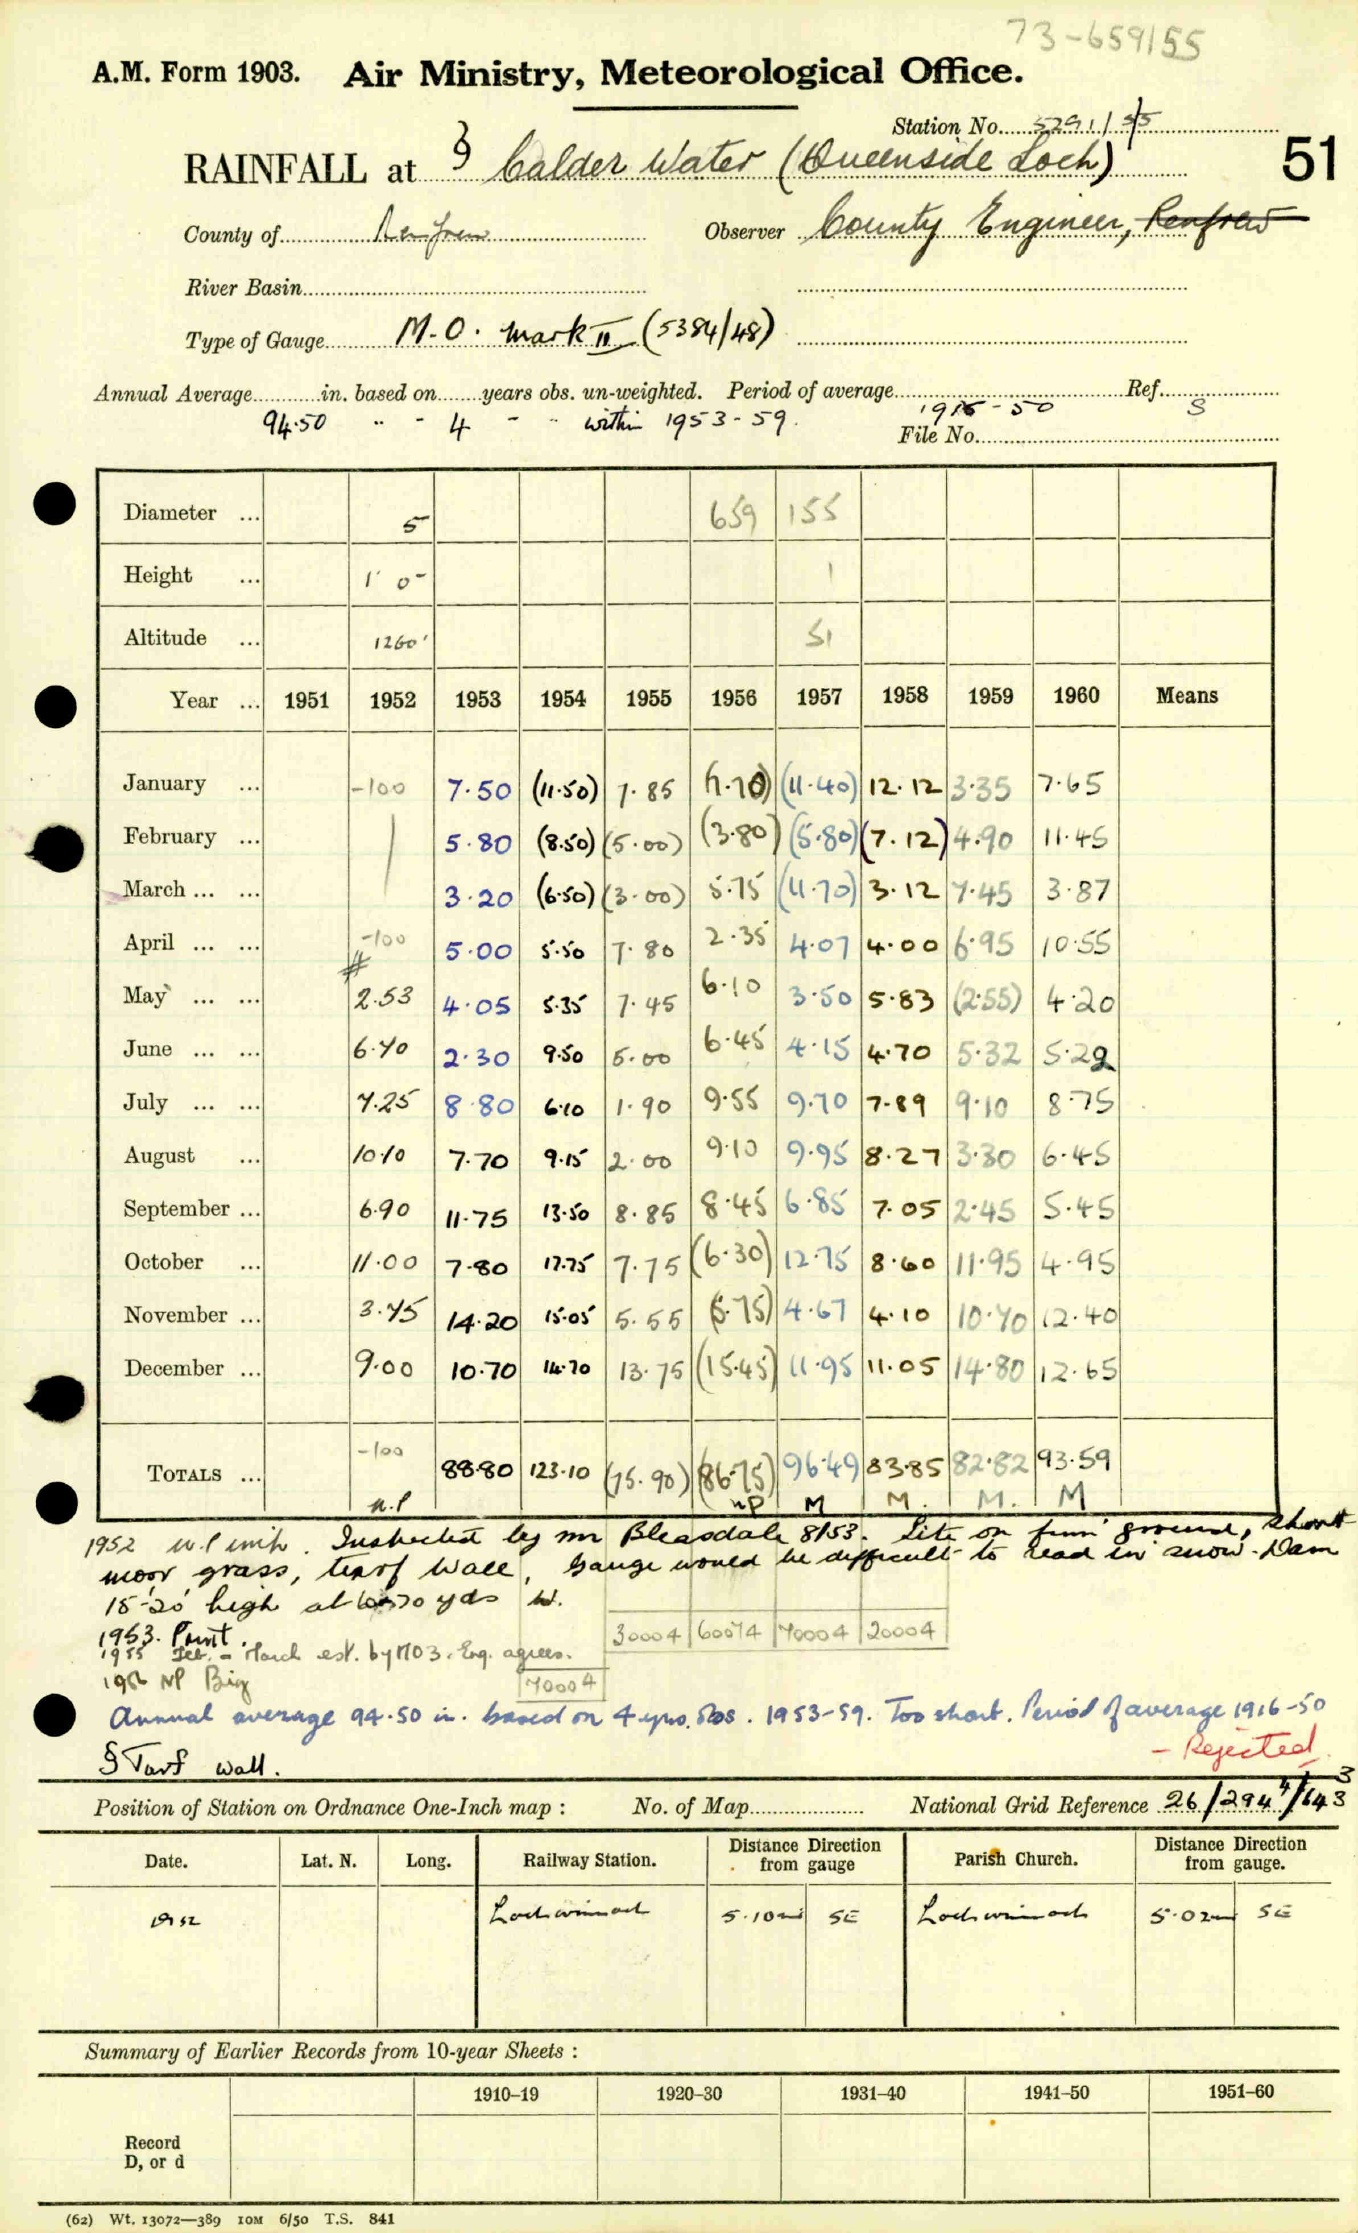 73-659155
A.M. Form 1903. Air Ministry, Meteorological Office.
Station No. 5291/55
RAINFALL at § Calder Water (Queenside Loch) 51
County of Renfrew Observer County Engineer, Renfrew
River Basin
Type of Gauge M.O. Mark II (5384/48)
Annual Average in. based on years obs. un-weighted. Period of average Ref.
94.50 " - 4 - " within 1953-59. 1916-50 S
File No.
Diameter ... 5 659 155
Height ... 1' 0" 1
Altitude ... 1260' 51
Year ... 1951 1952 1953 1954 1955 1956 1957 1958 1959 1960 Means
January ... -100 7.50 (11.50) 7.85 (7.70) (11.40) 12.12 3.35 7.65
February ... 5.80 (8.50) (5.00) (3.80) (5.80) (7.12) 4.90 11.45
March ... ... 3.20 (6.50) (3.00) 5.75 (11.70) 3.12 7.45 3.87
April ... ... -100 5.00 5.50 7.80 2.35 4.07 4.00 6.95 10.55
May ... ... 2.53 4.05 5.35 7.45 6.10 3.50 5.83 (2.55) 4.20
June ... ... 6.70 2.30 9.50 5.00 6.45 4.15 4.70 5.32 5.22
July ... ... 7.25 8.80 6.10 1.90 9.55 9.70 7.89 9.10 8.75
August ... 10.10 7.70 9.15 2.00 9.10 9.95 8.27 3.30 6.45
September ... 6.90 11.75 13.50 8.85 8.45 6.85 7.05 2.45 5.45
October ... 11.00 7.80 17.75 7.75 (6.30) 12.75 8.60 11.95 4.95
November ... 3.75 14.20 15.05 5.55 (5.75) 4.67 4.10 10.70 12.40
December ... 9.00 10.70 14.70 13.75 (15.45) 11.95 11.05 14.80 12.65
TOTALS ... -100 88.80 123.10 (75.90) (86.75) 96.49 83.85 82.82 93.59
n.p nP M M. M. M
1952 n.p inch. Inspected by Mr Bleasdale 8/53. Site on firm ground, short
moor grass, turf wall, Gauge would be difficult to read in snow. Dam
15'-20' high at 70 yds W.
30004 60074 70004 20004
1953. Print.
1955 Feb. - March est. by MO3. Eng. agrees.
1956 NP 70004
Annual average 94.50 in. based on 4 yrs. obs. 1953-59. Too short. Period of average 1916-50
- Rejected.
§ Turf wall.
Position of Station on Ordnance One-Inch map : No. of Map National Grid Reference 26/294 4/643 3
Date. Lat. N. Long. Railway Station. Distance from gauge Direction Parish Church. Distance from gauge. Direction
1952 Lochwinnoch 5.10 SE Lochwinnoch 5.02 SE
Summary of Earlier Records from 10-year Sheets :
1910–19 1920–30 1931–40 1941–50 1951–60
Record
D, or d
(62) Wt. 13072—389 10M 6/50 T.S. 841